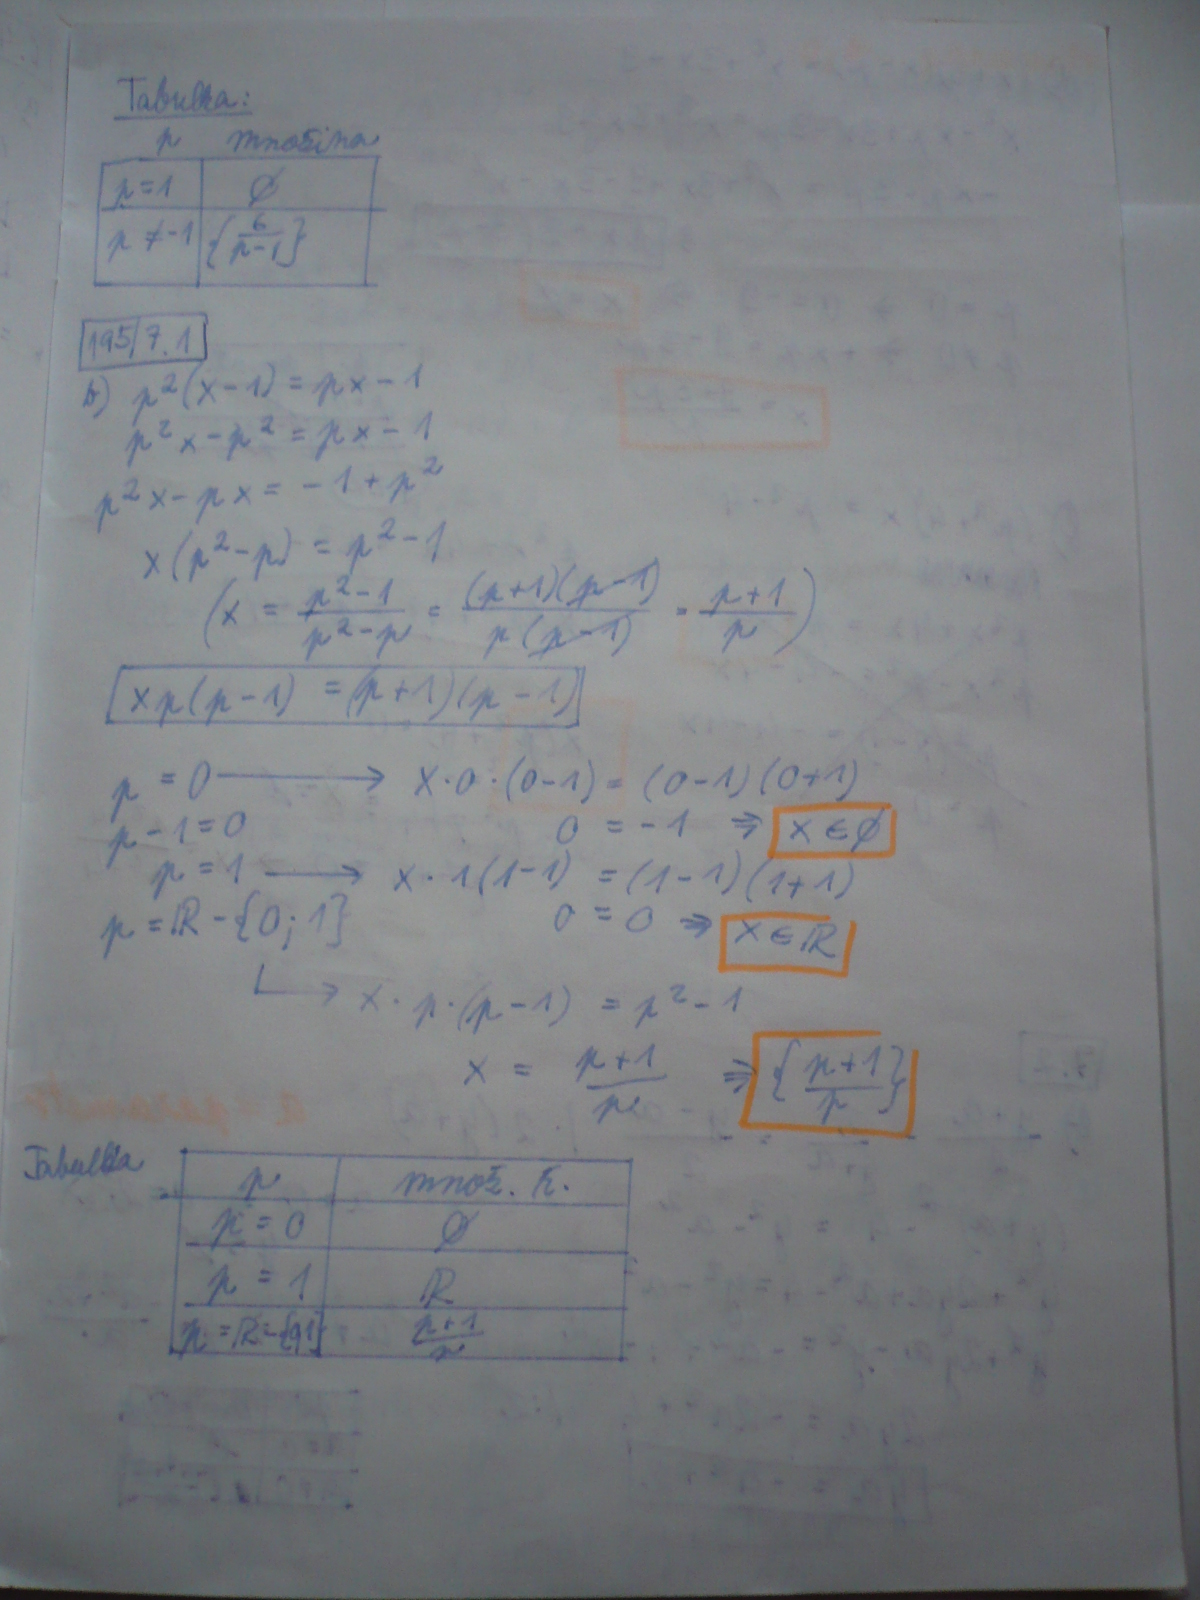 Tabulka:
p množina
p = 1 ∅
p ≠ -1 {6/(p-1)}
195/7.1
b) p²(x-1) = px - 1
p²x - p² = px - 1
p²x - px = -1 + p²
x(p² - p) = p² - 1
(x = (p²-1)/(p²-p) = (p+1)(p-1)/p(p-1) = (p+1)/p)
xp(p-1) = (p+1)(p-1)
p = 0 → x·0·(0-1) = (0-1)(0+1)
p - 1 = 0 0 = -1 ⇒ x ∈ ∅
p = 1 → x·1(1-1) = (1-1)(1+1)
p = ℝ - {0; 1} 0 = 0 ⇒ x ∈ ℝ
↳ x·p·(p-1) = p² - 1
x = (p+1)/p ⇒ {(p+1)/p}
Tabulka
p množ. ř.
p = 0 ∅
p = 1 ℝ
p = ℝ - {0,1} (p+1)/p